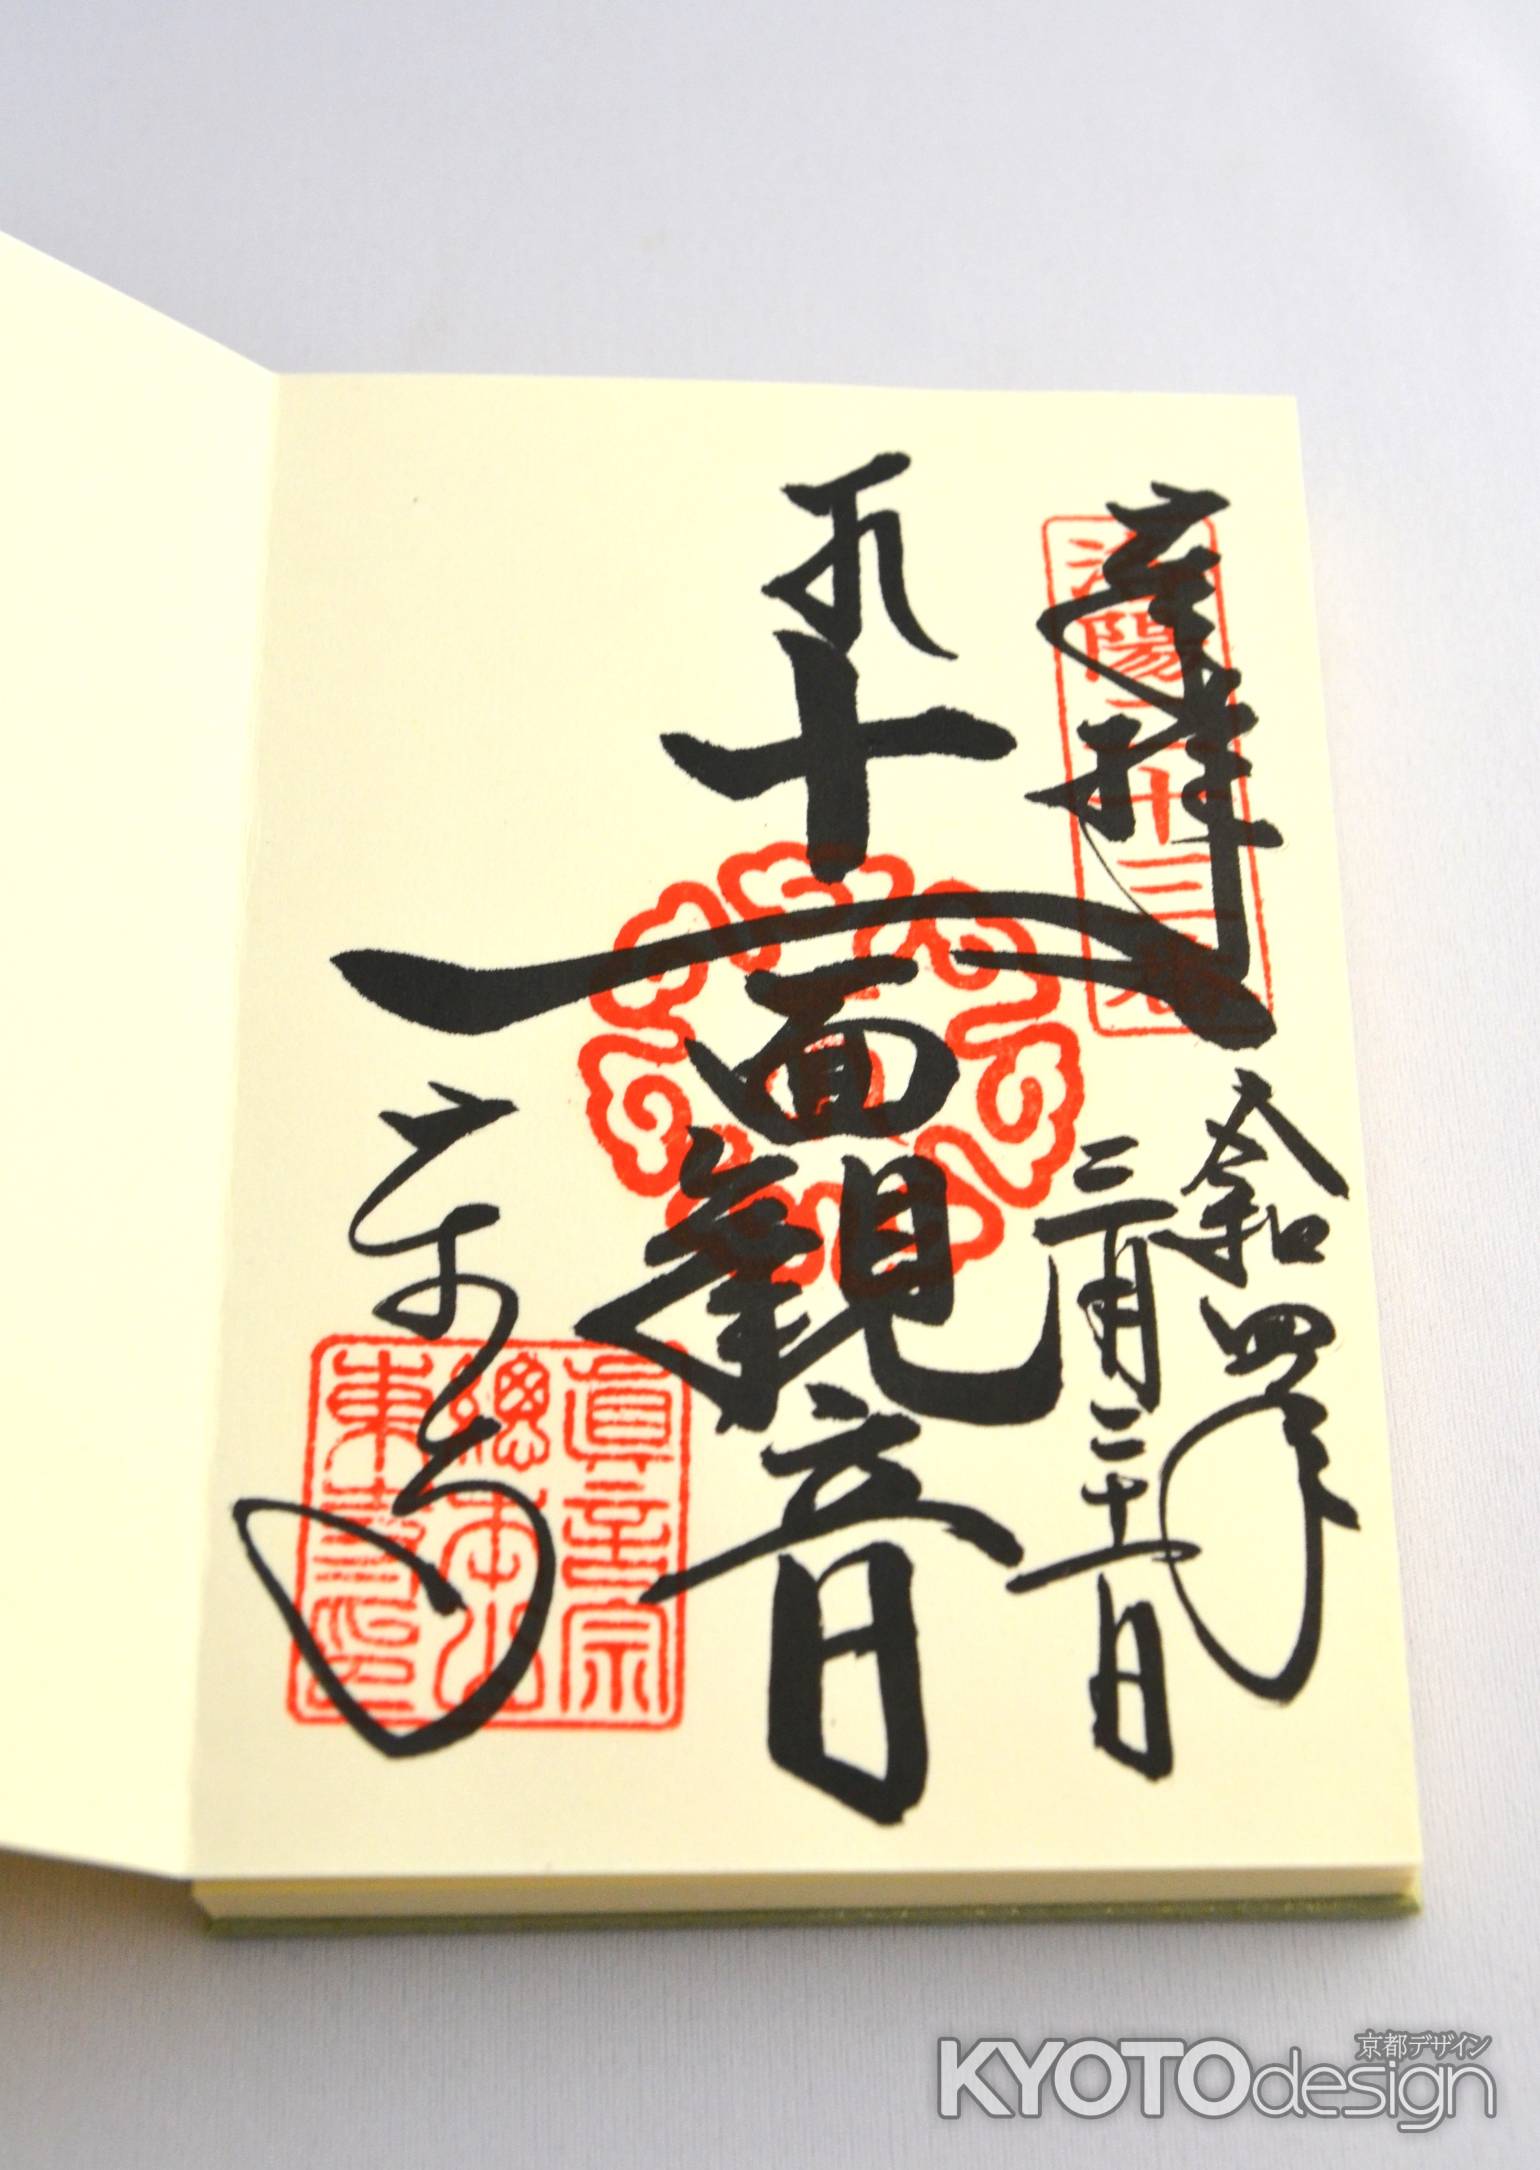 奉拝
洛陽二十三番
令和四年
三月二十一日
十一面観音
東寺
真言宗
總本山
東寺印
京都デザイン
KYOTOdesign